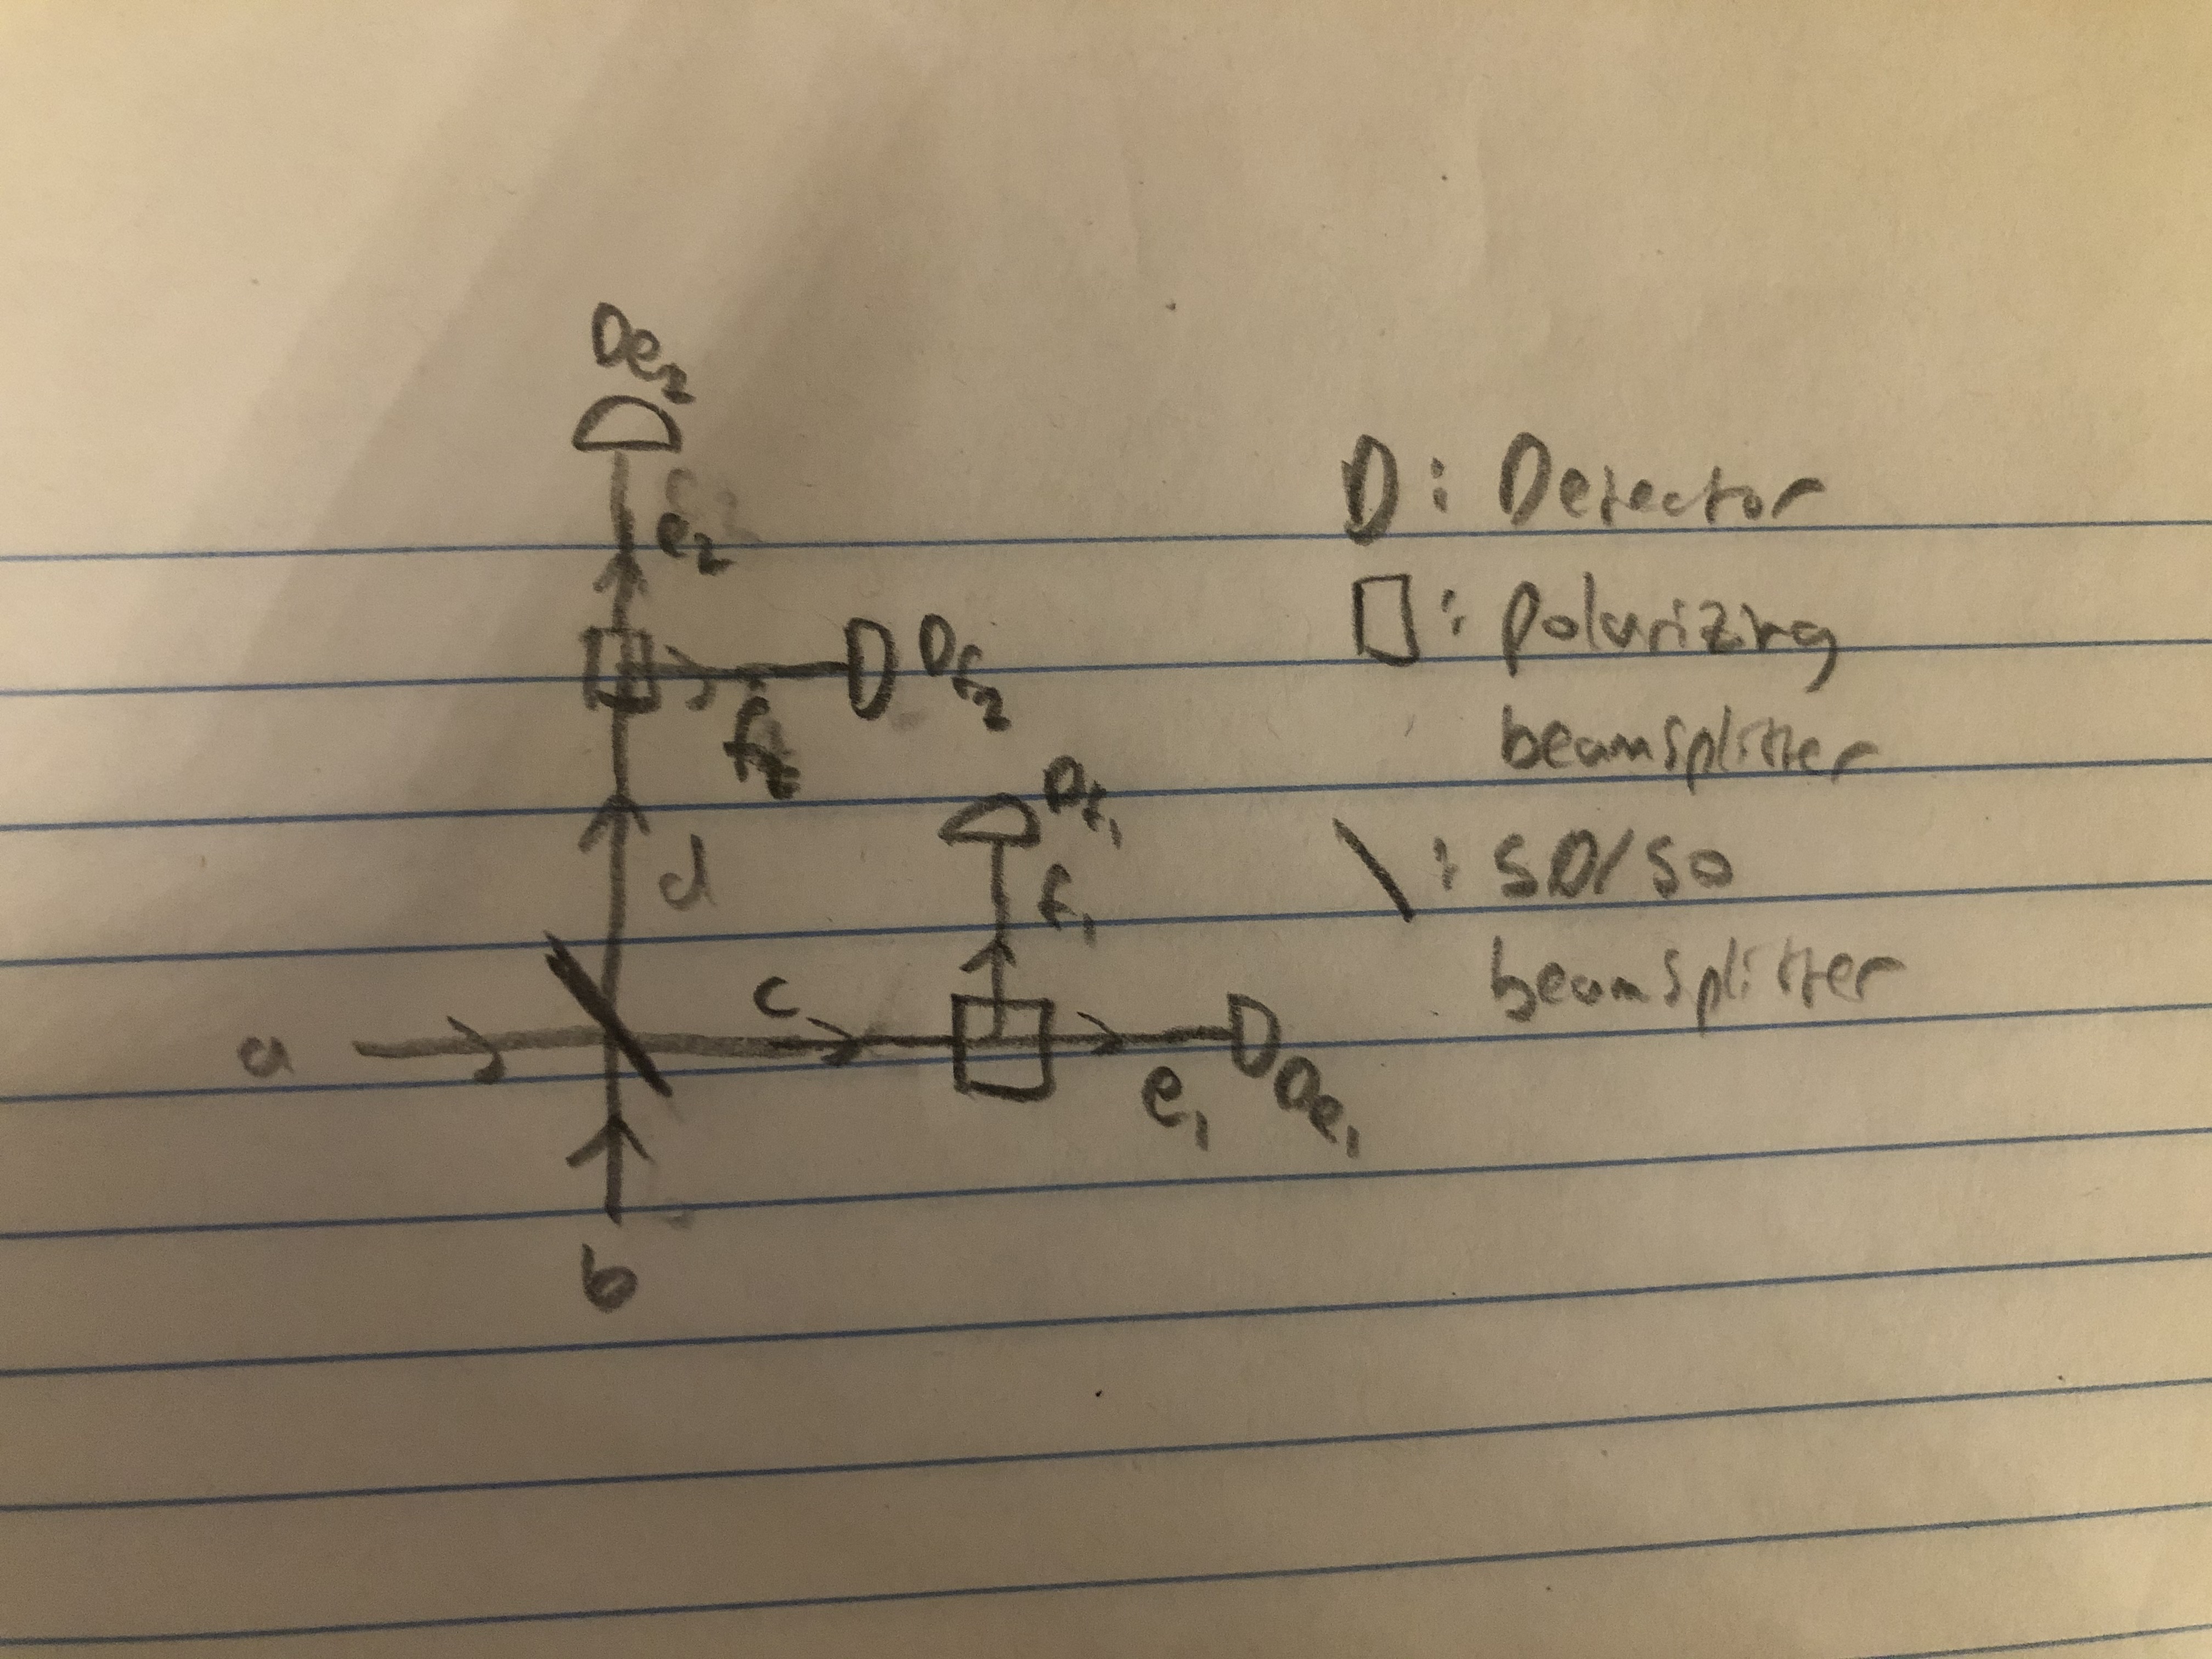 De₂
e₂
f₂
Df₂
d
Df₁
f₁
a
c
e₁
De₁
b
D: Detector
□: polarizing
beamsplitter
\: 50/50
beamsplitter